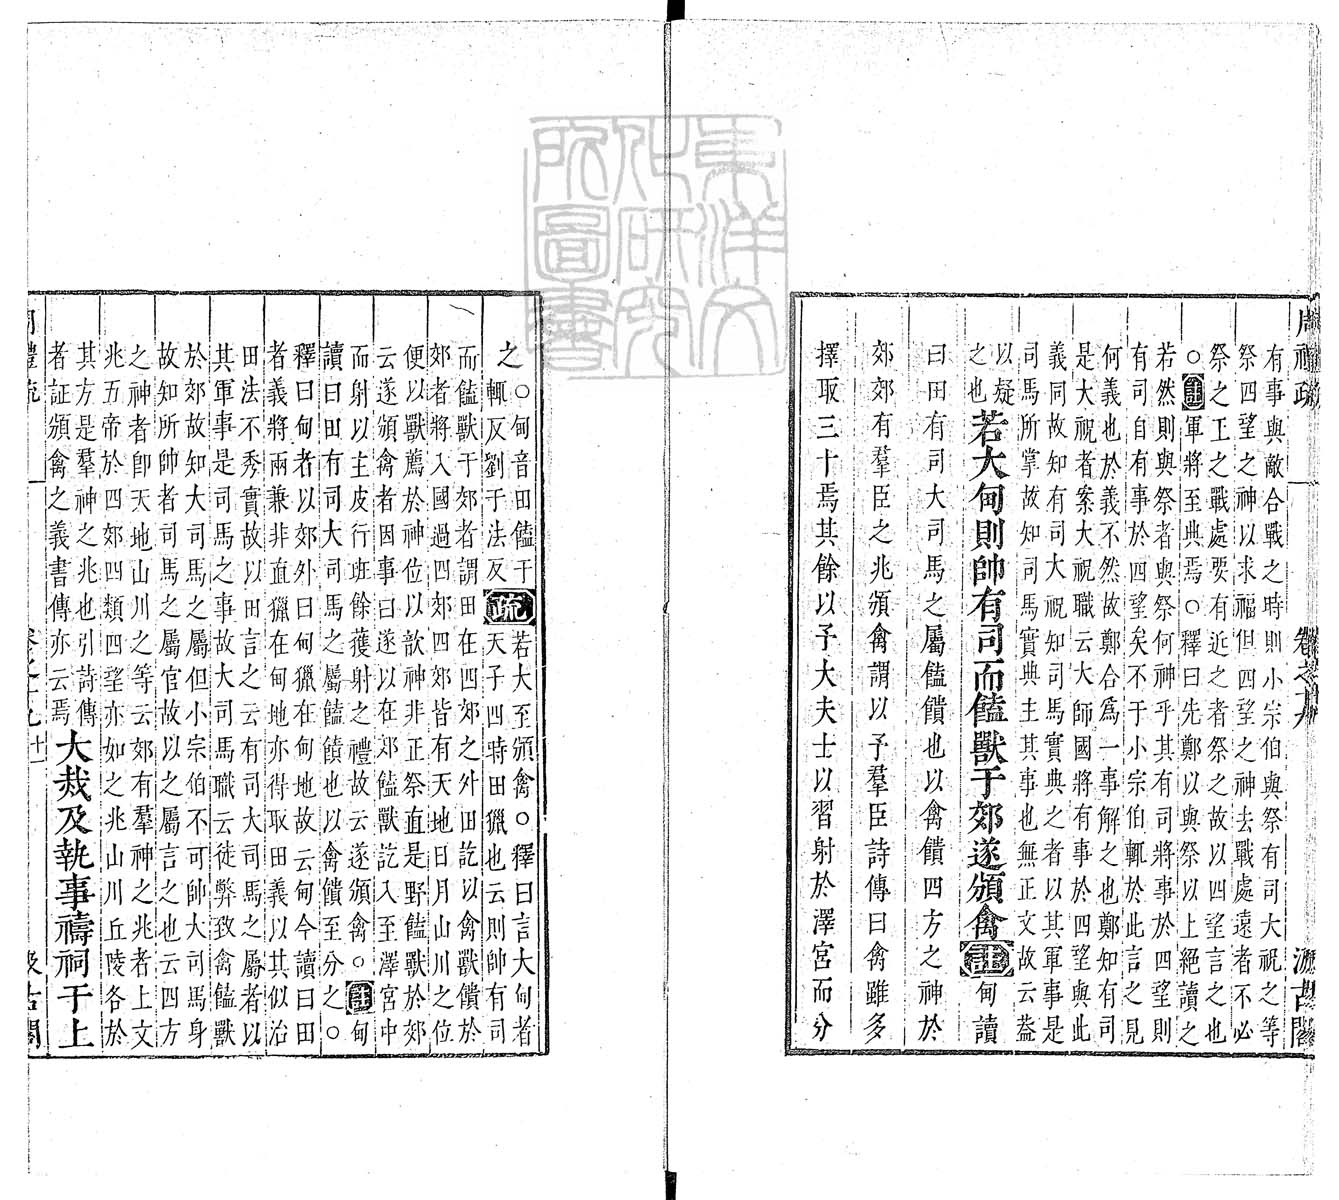 周禮疏
卷之十九
汲古閣
有事與敵合戰之時則小宗伯與祭有司大祝之等
祭四望之神以求福但四望之神去戰處遠者不必
祭之王之戰處要有近之者祭之故以四望言之也
○註軍將至典焉○釋曰先鄭以與祭以上絕讀之
若然則與祭者與祭何神乎其有司將事於四望則
有司自有事於四望矣不干小宗伯輒於此言之見
何義也於義不然故鄭合爲一事解之也鄭知有司
是大祝者案大祝職云大師國將有事於四望與此
義同故知有司大祝知司馬實典之者以其軍事是
司馬所掌故知司馬實典主其事也無正文故云蓋
以疑
之也
若大甸則帥有司而饁獸于郊遂頒禽
註甸讀
曰田有司大司馬之屬饁饋也以禽饋四方之神於
郊郊有羣臣之兆頒禽謂以予羣臣詩傳曰禽雖多
擇取三十焉其餘以予大夫士以習射於澤宮而分
之○甸音田饁干
輒反劉于法反
疏
若大至頒禽○釋曰言大甸者
天子四時田獵也云則帥有司
而饁獸于郊者謂田在四郊之外田訖以禽獸饋於
郊者將入國過四郊四郊皆有天地日月山川之位
便以獸薦於神位以歆神非正祭直是野饁獸於郊
云遂頒禽者因事曰遂以在郊饁獸訖入至澤宮中
而射以主皮行班餘獲射之禮故云遂頒禽○註甸
讀曰田有司大司馬之屬饁饋也以禽饋至分之○
釋曰甸者以郊外曰甸獵在甸地故云甸今讀曰田
者義將兩兼非直獵在甸地亦得取田義以其似治
田法不秀實故以田言之云有司大司馬之屬者以
其軍事是司馬之事故大司馬職云徒弊致禽饁獸
於郊故知大司馬之屬但小宗伯不可帥大司馬身
故知所帥者司馬之屬官故以之屬言之也云四方
之神者卽天地山川之等云郊有羣神之兆者上文
兆五帝於四郊四類四望亦如之兆山川丘陵各於
其方是羣神之兆也引詩傳
者証頒禽之義書傳亦云焉
大烖及執事禱祠于上
周禮疏
卷之十九
十一
汲古閣
東洋文化研究所圖書